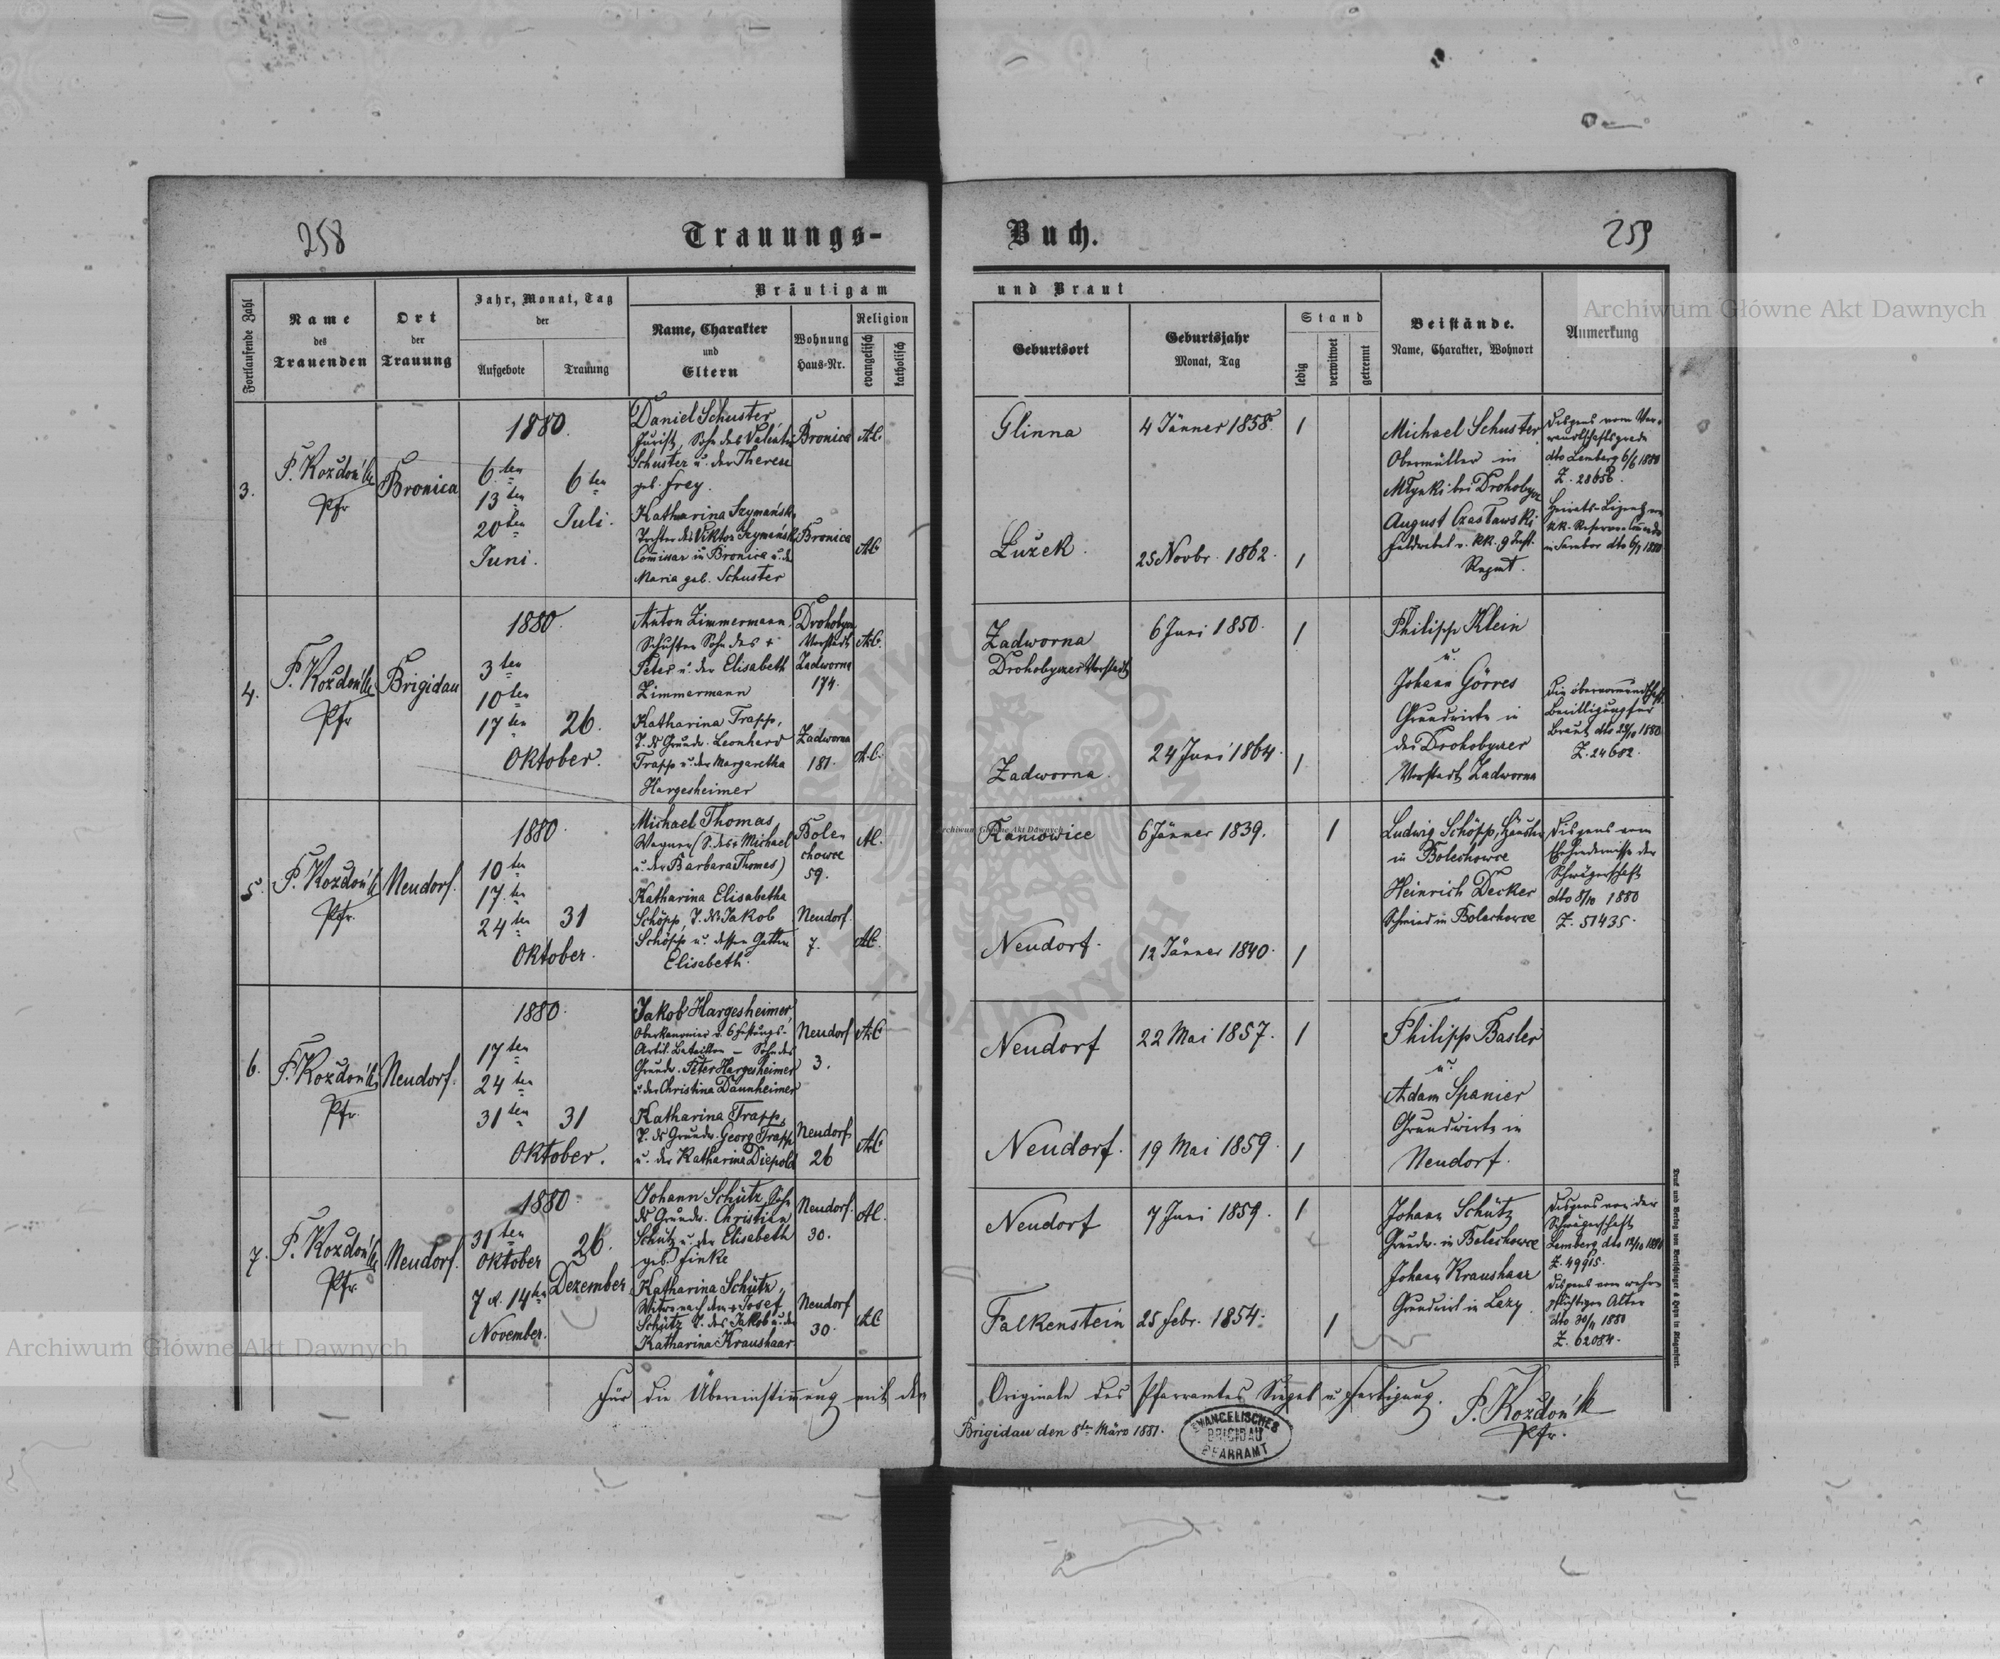 258
Trauungs-
Fortlaufende Zahl
Name
des
Trauenden
Ort
der
Trauung
Jahr, Monat, Tag
der
Aufgebote
Trauung
Bräutigam
Name, Charakter
und
Eltern
Wohnung
Haus-Nr.
Religion
evangelisch
katholisch
3.
Pfr
Bronica
1880.
6ten
13ten
20ten
Juni.
6ten
Juli.
Daniel Schuster,
Jurist, Sohn des Valentin
Schuster u. der Therese
geb. Frey.
Katharina Szymańska
Tochter des Viktor Szymański
Comissar in Bronica u. der
Maria geb. Schuster
Bronica
Bronica
A.C.
A.C.
4.
Pfr
Brigidau
1880.
3ten
10ten
17ten
26.
Oktober.
Anton Zimmermann,
Schuster Sohn des +
Peter u. der Elisabeth
Zimmermann
Katharina Trapp,
T. ds Grundw. Leonhard
Trapp u. der Margaretha
Hargesheimer
Drohobycz
Vorstadt
Zadworna
174.
Zadworna
181.
A.C.
A.C.
5.
Pfr.
Neudorf.
1880.
10ten
17ten
24ten
31
Oktober.
Michael Thomas,
Wagner (S. des + Michael
u. der Barbara Thomas)
Katharina Elisabetha
Schöpp, T. ds Jakob
Schöpp u. dessen Gattin
Elisabeth.
Bole-
chowce
59.
Neudorf
7.
A.C.
A.C.
6.
Pfr.
Neudorf.
1880.
17ten
24ten
31ten
31
Oktober.
Jakob Hargesheimer,
Oberkanonier d. 6 Festungs-
Artil. Bataillon – Sohn des
Grundw. Peter Hargesheimer
u. der Christina Dannheimer
Katharina Trapp,
T. ds Grundw. Georg Trapp
u. der Katharina Diepold
Neudorf
3.
Neudorf
26
A.C.
A.C.
7.
Pfr.
Neudorf.
1880.
31ten
Oktober
7 u. 14ten
November.
26.
Dezember
Johann Schütz, Sohn
ds Grundw. Christian
Schütz u. der Elisabeth
geb. Finke
Katharina Schütz,
Witwe nach dem + Josef
Schütz T. des Jakob u. der
Katharina Kraushaar
Neudorf.
30.
Neudorf
30.
A.C.
A.C.
Für die Übereinstimmung mit dem
259
Buch.
und Braut
Geburtsort
Geburtsjahr
Monat, Tag
Stand
ledig
verwitwet
getrennt
Beistände.
Name, Charakter, Wohnort
Anmerkung
Glinna
4 Jänner 1858.
1
Łużek.
25 Novbr. 1862.
1
Michael Schuster,
Obermüller in
Młynki bei Drohobycz
August Czasławski
Feldwebel v. kk. 9 Inft.
Regmt.
Dispens vom Ver-
wandtschaftsgrade
dto Lemberg 6/6 1880
Z. 28656.
Heirats-Lizenz vom
kk. Reservecomando
in Sambor dto 6/7 1880.
Zadworna
Drohobyczer Vorstadt
6 Juni 1850.
1
Zadworna.
24 Juni 1864.
1
Philipp Klein
u.
Johann Görres
Grundwirte in
der Drohobyczer
Vorstadt Zadworna
Die obervormundschaft.
Bewilligung für
Braut dto 24/10 1880
Z. 24602.
Raniowice
6 Jänner 1839.
1
Neudorf.
12 Jänner 1840.
1
Ludwig Schöpp, Häusler
in Bolechowce
Heinrich Decker
Schmied in Bolechowce
Dispens vom
Ehehindernisse der
Schwägerschaft
dto 8/10 1880
Z. 51435.
Neudorf
22 Mai 1857.
1
Neudorf.
19 Mai 1859.
1
Philipp Basler
u.
Adam Spanier
Grundwirte in
Neudorf.
Neudorf
7 Juni 1859.
1
Falkenstein
25 Febr. 1854.
1
Johann Schütz
Grundw. in Bolechowce
Johann Kraushaar
Grundwirt in Lazy.
Dispens von der
Schwägerschaft
Lemberg dto 12/10 1880
Z. 49915.
Dispens vom wehr-
pflichtigen Alter
dto 30/11 1880
Z. 62084.
Originale des Pfarramtes Siegel u. Fertigung.
Brigidau den 8ten März 1881.
EVANGELISCHES
BRIGIDAU
PFARRAMT
Pfr.
Druck und Verlag von Bertschinger & Heyn in Klagenfurt.
Archiwum Główne Akt Dawnych
Archiwum Główne Akt Dawnych
Archiwum Główne Akt Dawnych